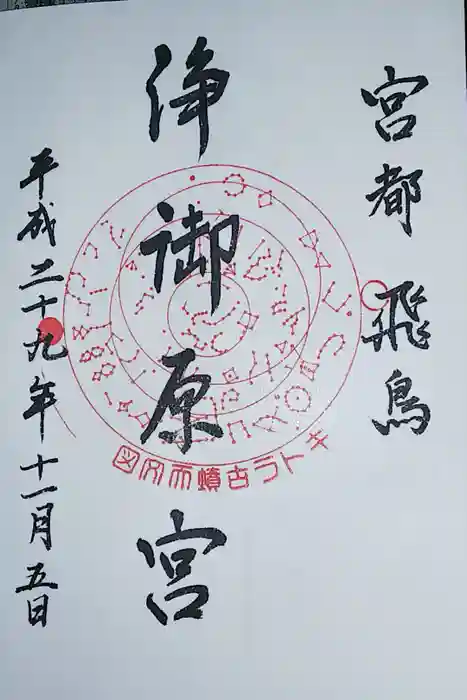 宮都 飛鳥
浄御原宮
平成二十九年十一月五日
キトラ古墳天文図